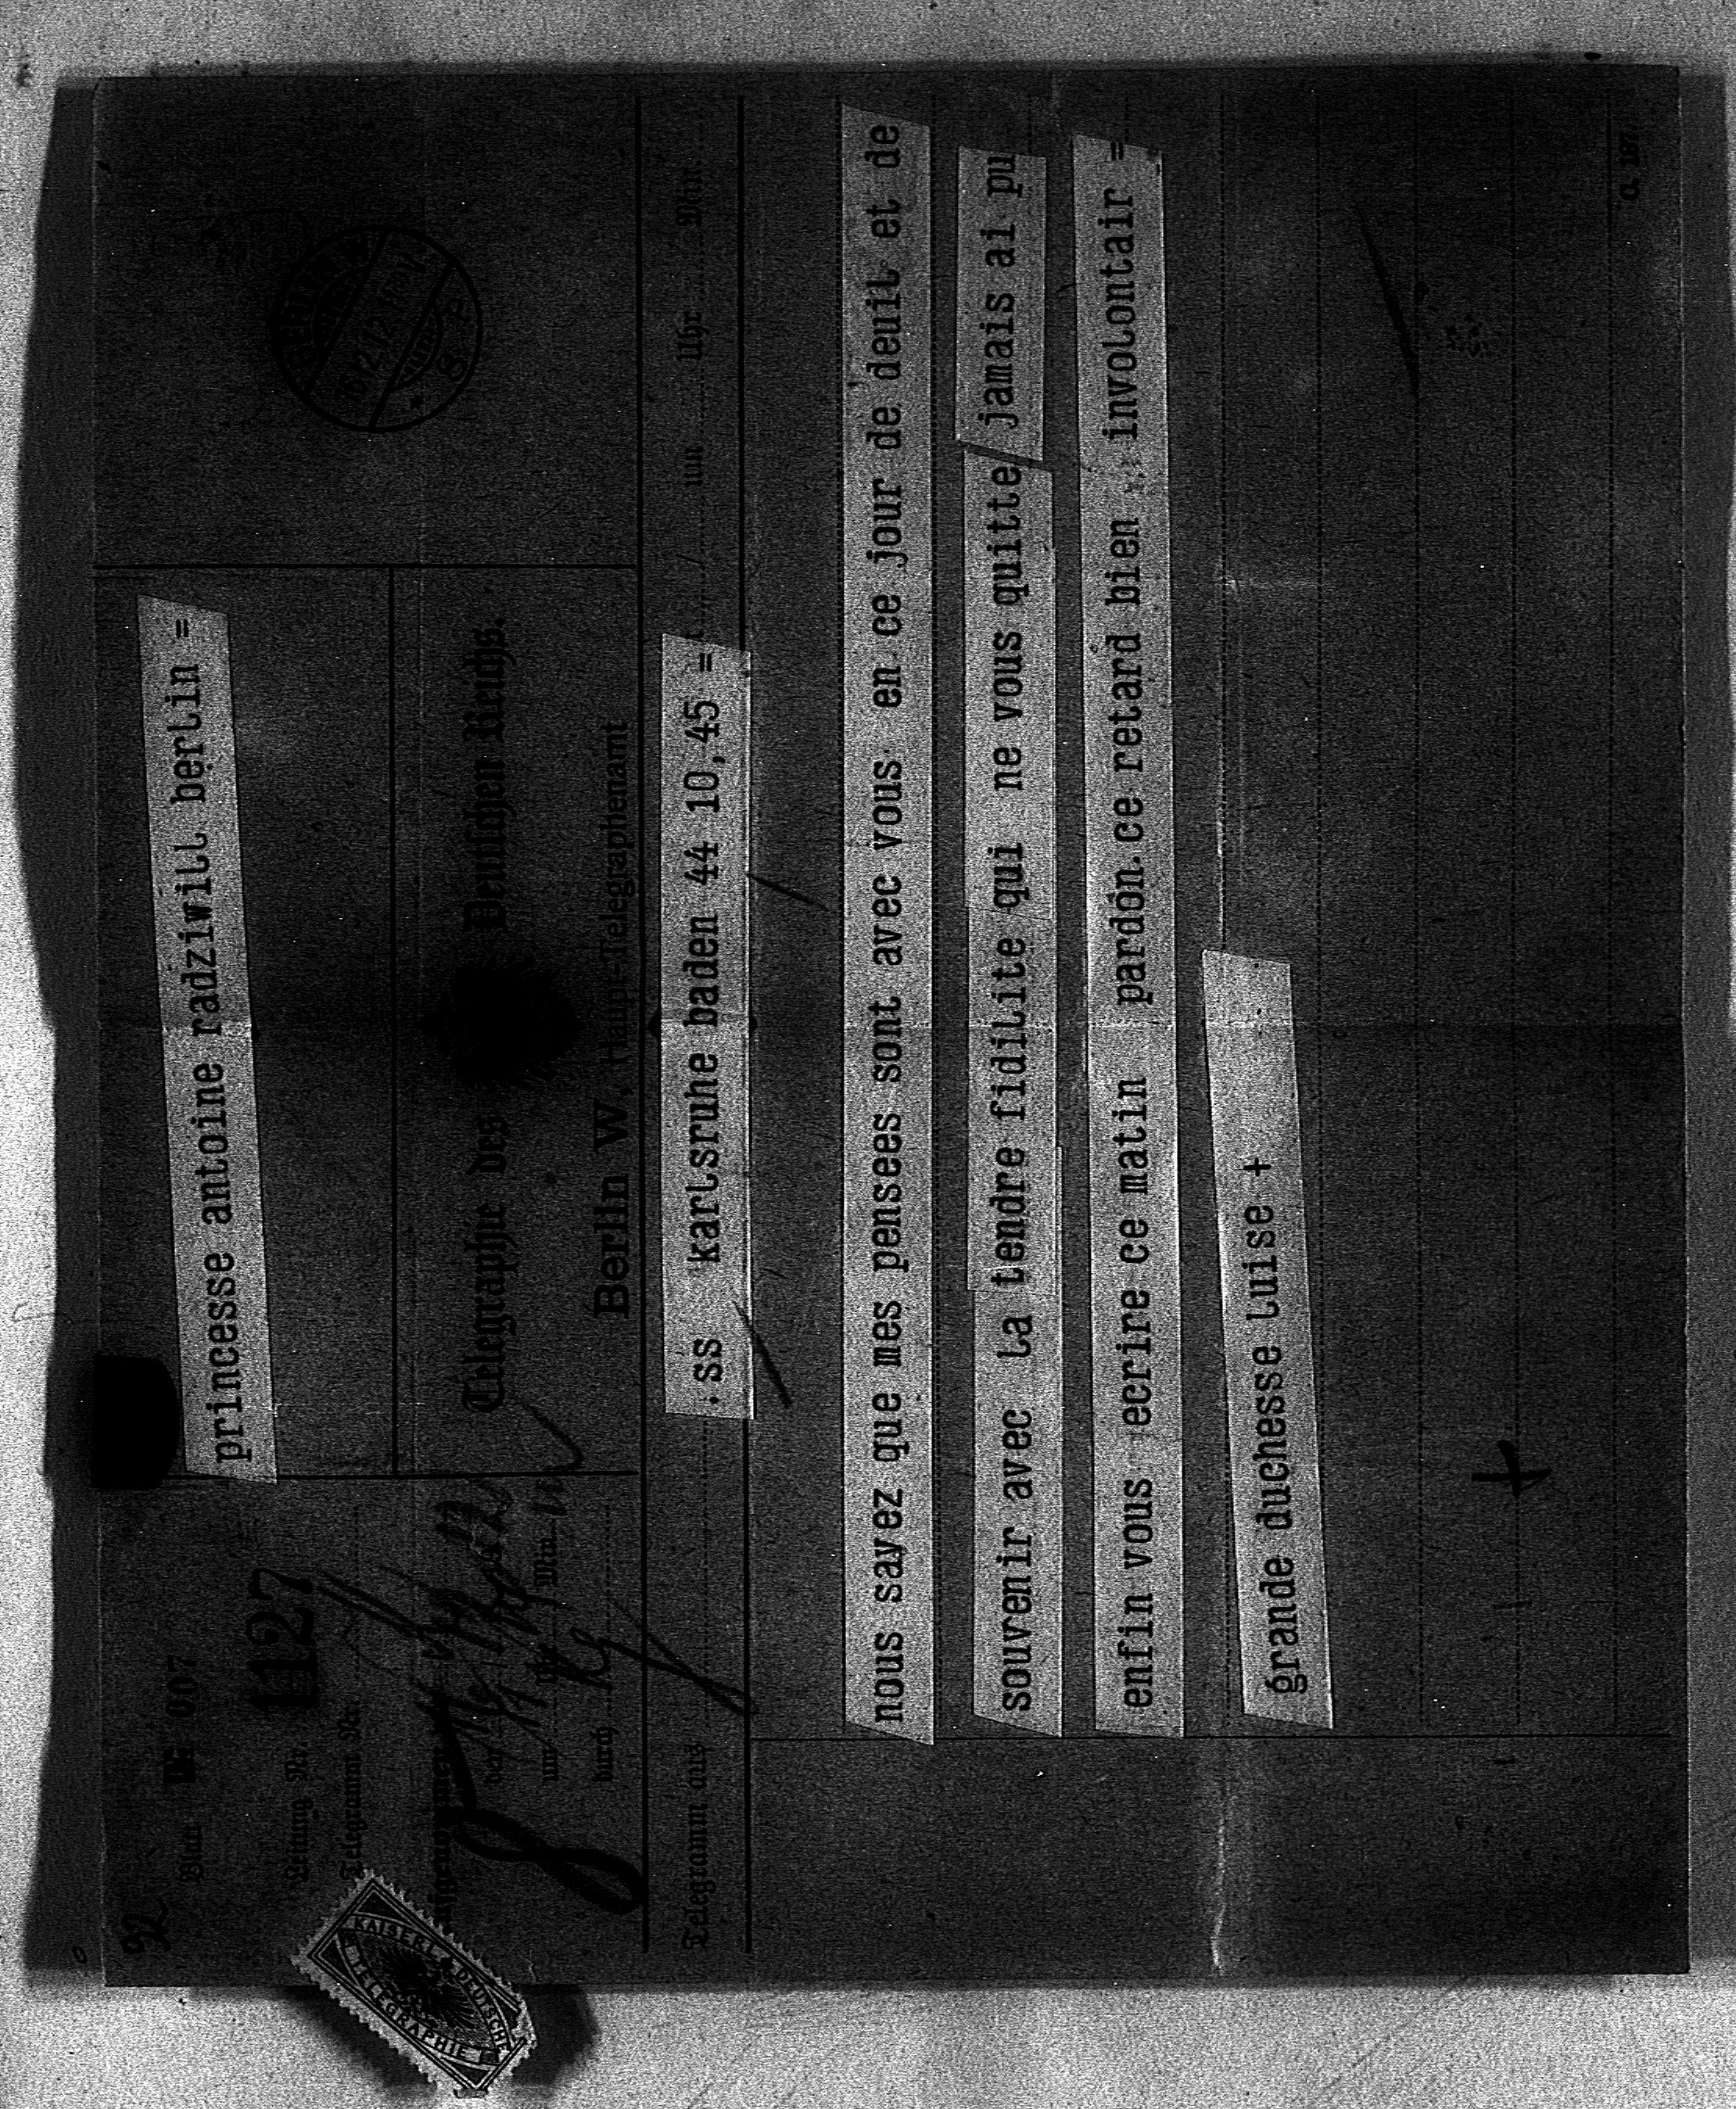 princesse antoine radziwill berlin =
Blatt
Leitung Nr. 1127
Telegramm Nr.
um Uhr Min.
durch
Telegraphie des Deutschen Reichs.
Berlin W, Haupt-Telegraphenamt
Telegramm aus ss karlsruhe baden 44 10,45 = um Uhr Min.
nous savez que mes pensees sont avec vous en ce jour de deuil et de
souvenir avec la tendre fidilite qui ne vous quitte jamais ai pu
enfin vous ecrire ce matin pardon ce retard bien involontair =
grande duchesse luise +
KAISERL. DEUTSCHE
TELEGRAPHIE